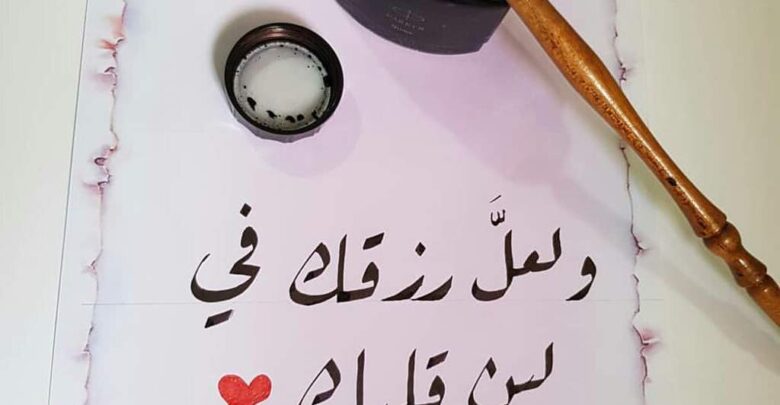 ولعلَّ رزقك في
لين قلبك